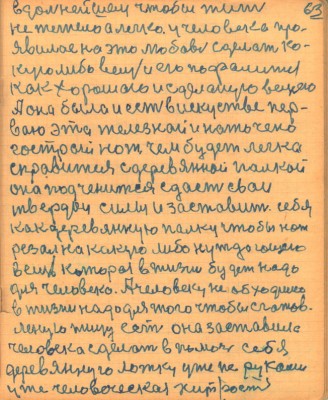 63
вдолнейшем чтобы жит
не тежело а легко. у человека про-
явилас на это любовь сделат ко-
кую либо вещ и его пофамилия
как хорошаго и сделаную вещ его
А она была и ест в искустве пер-
ваю эта железкай и наточено
гострой нож чем будет легка
справится сдеревянной палкой
она подченится сдаст свои
твердои силы и заставит себя
как деревянную палку чтобы нож
резал на какую либо нуждающею
вещ которая в жизни будет надо
для человека. А человеку необходимо
в жизни надо для того чтобы сготов-
леную пищу ест она заставила
человека сделат в
себя
деревянную ложку уже не руками
уже человеческая хитрость